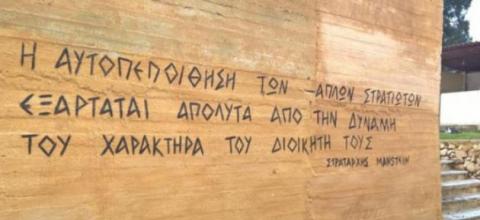 Η ΑΥΤΟΠΕΠΟΙΘΗΣΗ ΤΩΝ ΑΠΛΩΝ ΣΤΡΑΤΙΩΤΩΝ
ΕΞΑΡΤΑΤΑΙ ΑΠΟΛΥΤΑ ΑΠΟ ΤΗΝ ΔΥΝΑΜΗ
ΤΟΥ ΧΑΡΑΚΤΗΡΑ ΤΟΥ ΔΙΟΙΚΗΤΗ ΤΟΥΣ
ΣΤΡΑΤΑΡΧΗΣ MANSTEIN